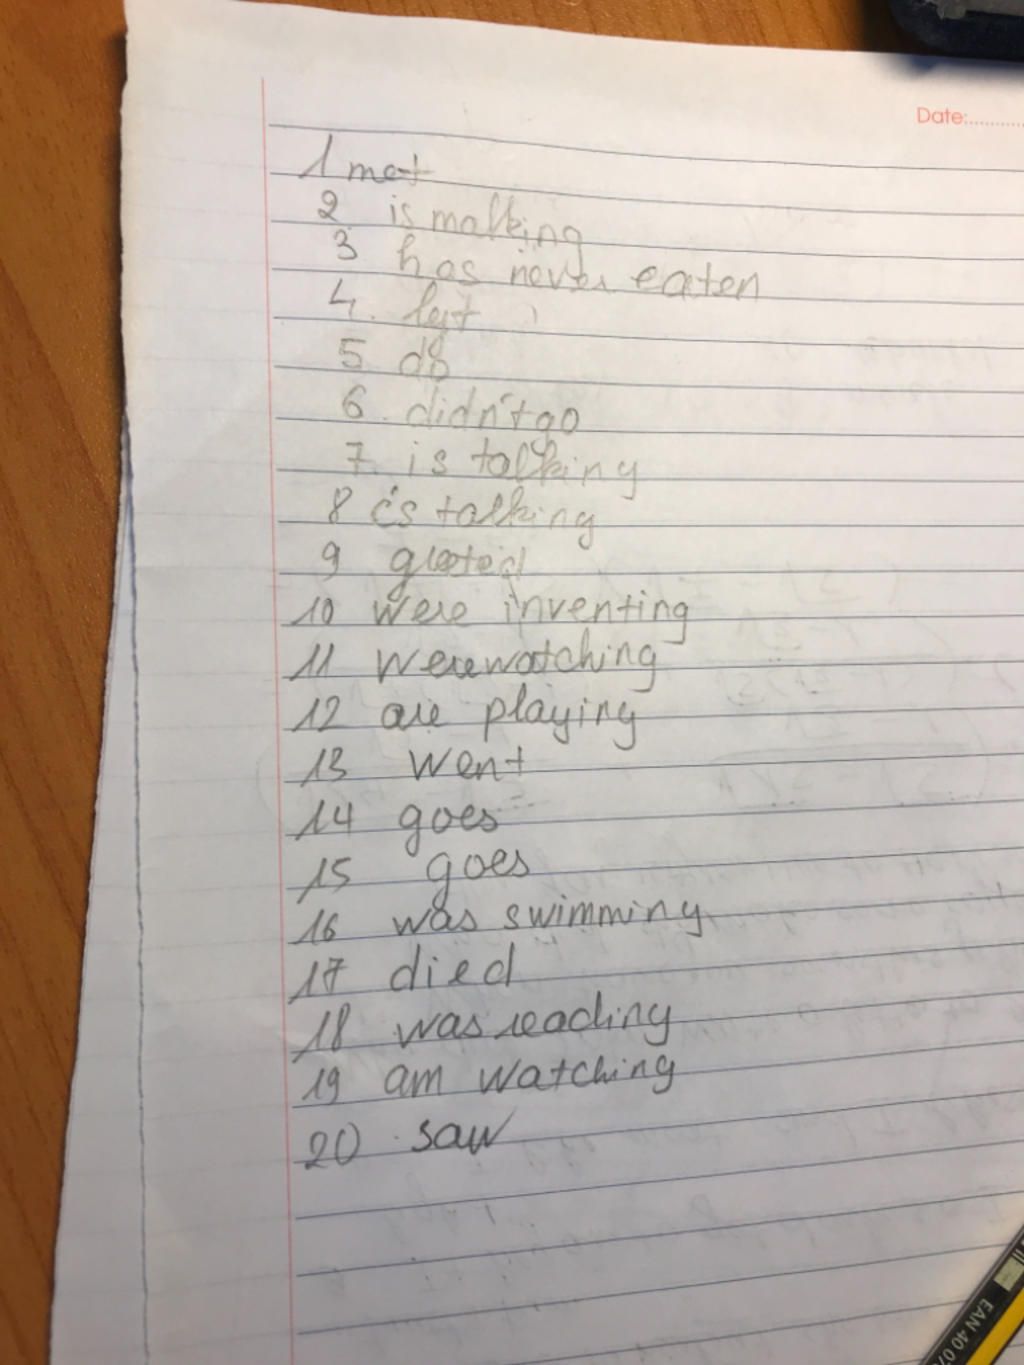 Date:..........
1 met
2 is malking
3 has never eaten
4. left
5 do
6. didn't go
7. is talking
8 is talking
9
10 were inventing
11 were watching
12 are playing
13 went
14 goes
15 goes
16 was swimming
17 died
18 was reading
19 am watching
20 saw
EAN 40 07